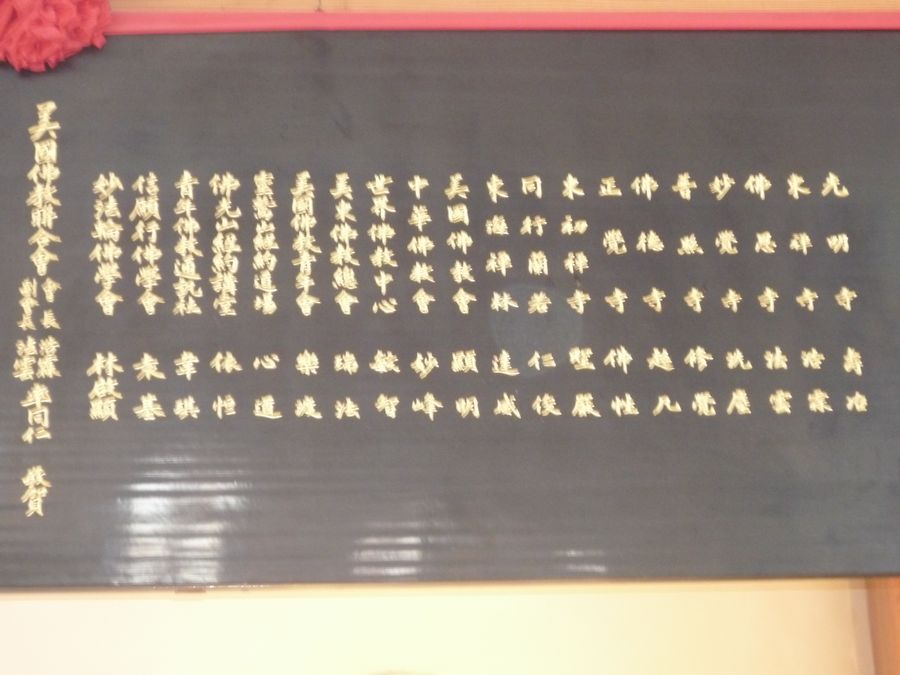 光明寺 壽冶
東禪寺 浩霖
佛恩寺 法雲
妙覺寺
普照寺 修覺
佛德寺 超凡
正覺寺 佛性
東初禪寺 聖嚴
同行蘭若 仁俊
東隱禪林 達成
美國佛教會 顯明
中華佛教會 妙峰
世界佛教中心 敏智
美東佛教總會 瑞法
美國佛教青年會 樂渡
靈鷲山紐約道場 心道
佛光山紐約講堂 依恒
青年佛教通訊社 韋琪
信願行佛學會
妙法輪佛學會 林啟顯
美國佛教聯合會 會長 浩霖 副會長 法雲 率同仁 敬賀